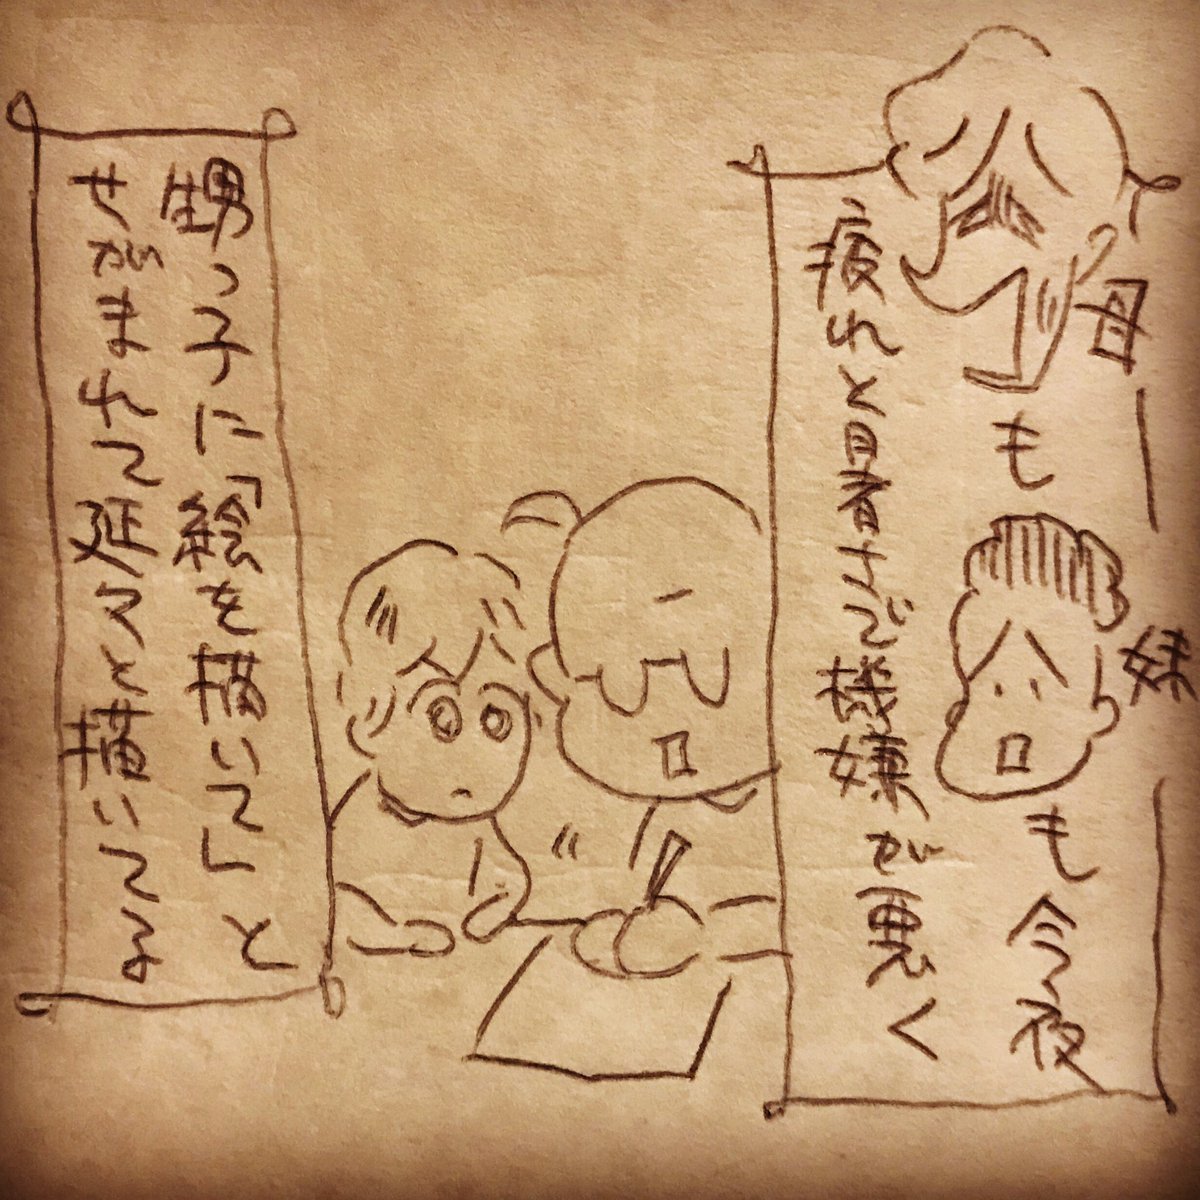 母も妹も今夜
疲れと暑さで機嫌が悪く
甥っ子に「絵を描いて」と
せがまれて延々と描いてる